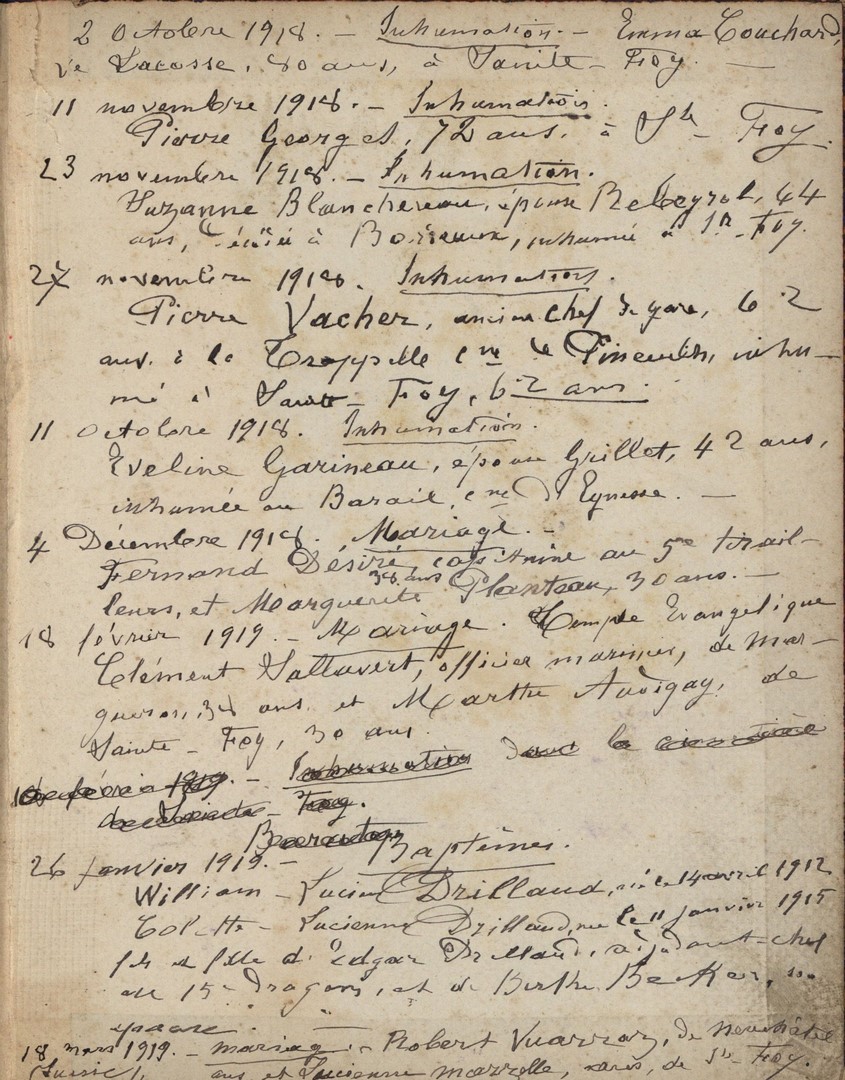 2 Octobre 1918. - Inhumation. - Emma Couchard,
Ve Lacosse, 80 ans, à Sainte-Foy. -
11 novembre 1918. - Inhumation.
Pierre Georges, 72 ans. à Ste-Foy.
23 novembre 1918. - Inhumation.
Suzanne Blanchereau, épouse Rebeyrol, 44
ans, à Bordeaux, inhumée à Ste-Foy.
27 novembre 1918. Inhumation.
Pierre Vacher, ancien chef de gare, 62
ans. à la cne de Pineuilh, inhu-
mé à Sainte-Foy, 62 ans.
11 Octobre 1918. Inhumation.
Eveline Garineau, épouse Grillet, 42 ans,
inhumée au Barail, cne d'Eynesse. -
4 Décembre 1918. Mariage. -
Fernand Désiré, capitaine au 5me tirail-
38 ans
leurs, et Marguerite Planteau, 30 ans. -
18 février 1919. - Mariage. Temple Evangélique
Clément Sallavert, officier marinier, de Mar-
gueron, 38 ans et Marthe Audigay, de
Sainte-Foy, 30 ans.
février 1919. - Inhumation dans le cimetière
de Sainte-Foy.
26 janvier 1919. - Baptêmes.
William-Lucien Drillaud, né le 14 avril 1912
Colette-Lucienne Drillaud, née le 11 janvier 1915
fils et fille d'Edgar Drillaud, adjudant-chef
au 15e dragons, et de Berthe Becker, son
épouse. -
18 mars 1919. - mariage. - Robert Vuarraz, de Neuchâtel
(Suisse), ans et Lucienne de Ste-Foy.